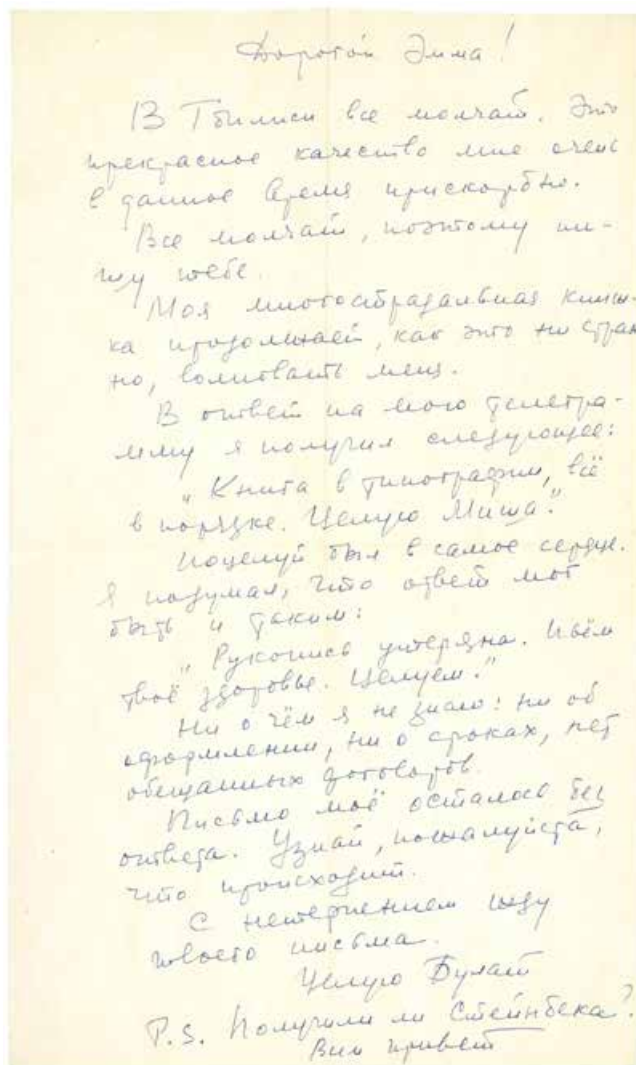 Дорогой Эмма!
В Тбилиси все молчат. Это
прекрасное качество мне очень
в данное время прискорбно.
Все молчат, поэтому пи-
шу тебе.
Моя многострадальная книж-
ка продолжает, как это ни стран
но, волновать меня.
В ответ на мою телеграм-
мму я получил следующее:
„Книга в типографии, всё
в порядке. Целую Миша."
Поцелуй был в самое сердце.
Я подумал, что ответ мог
быть и таким:
„Рукопись утеряна. Пьём
твоё здоровье. Целуем."
Ни о чём я не знаю: ни об
оформлении, ни о сроках, нет
обещанных договоров.
Письмо моё осталось без
ответа. Узнай, пожалуйста,
что происходит.
С нетерпением жду
твоего письма.
Целую Булат
P.S. Получили ли Стейнбека?
Вам привет